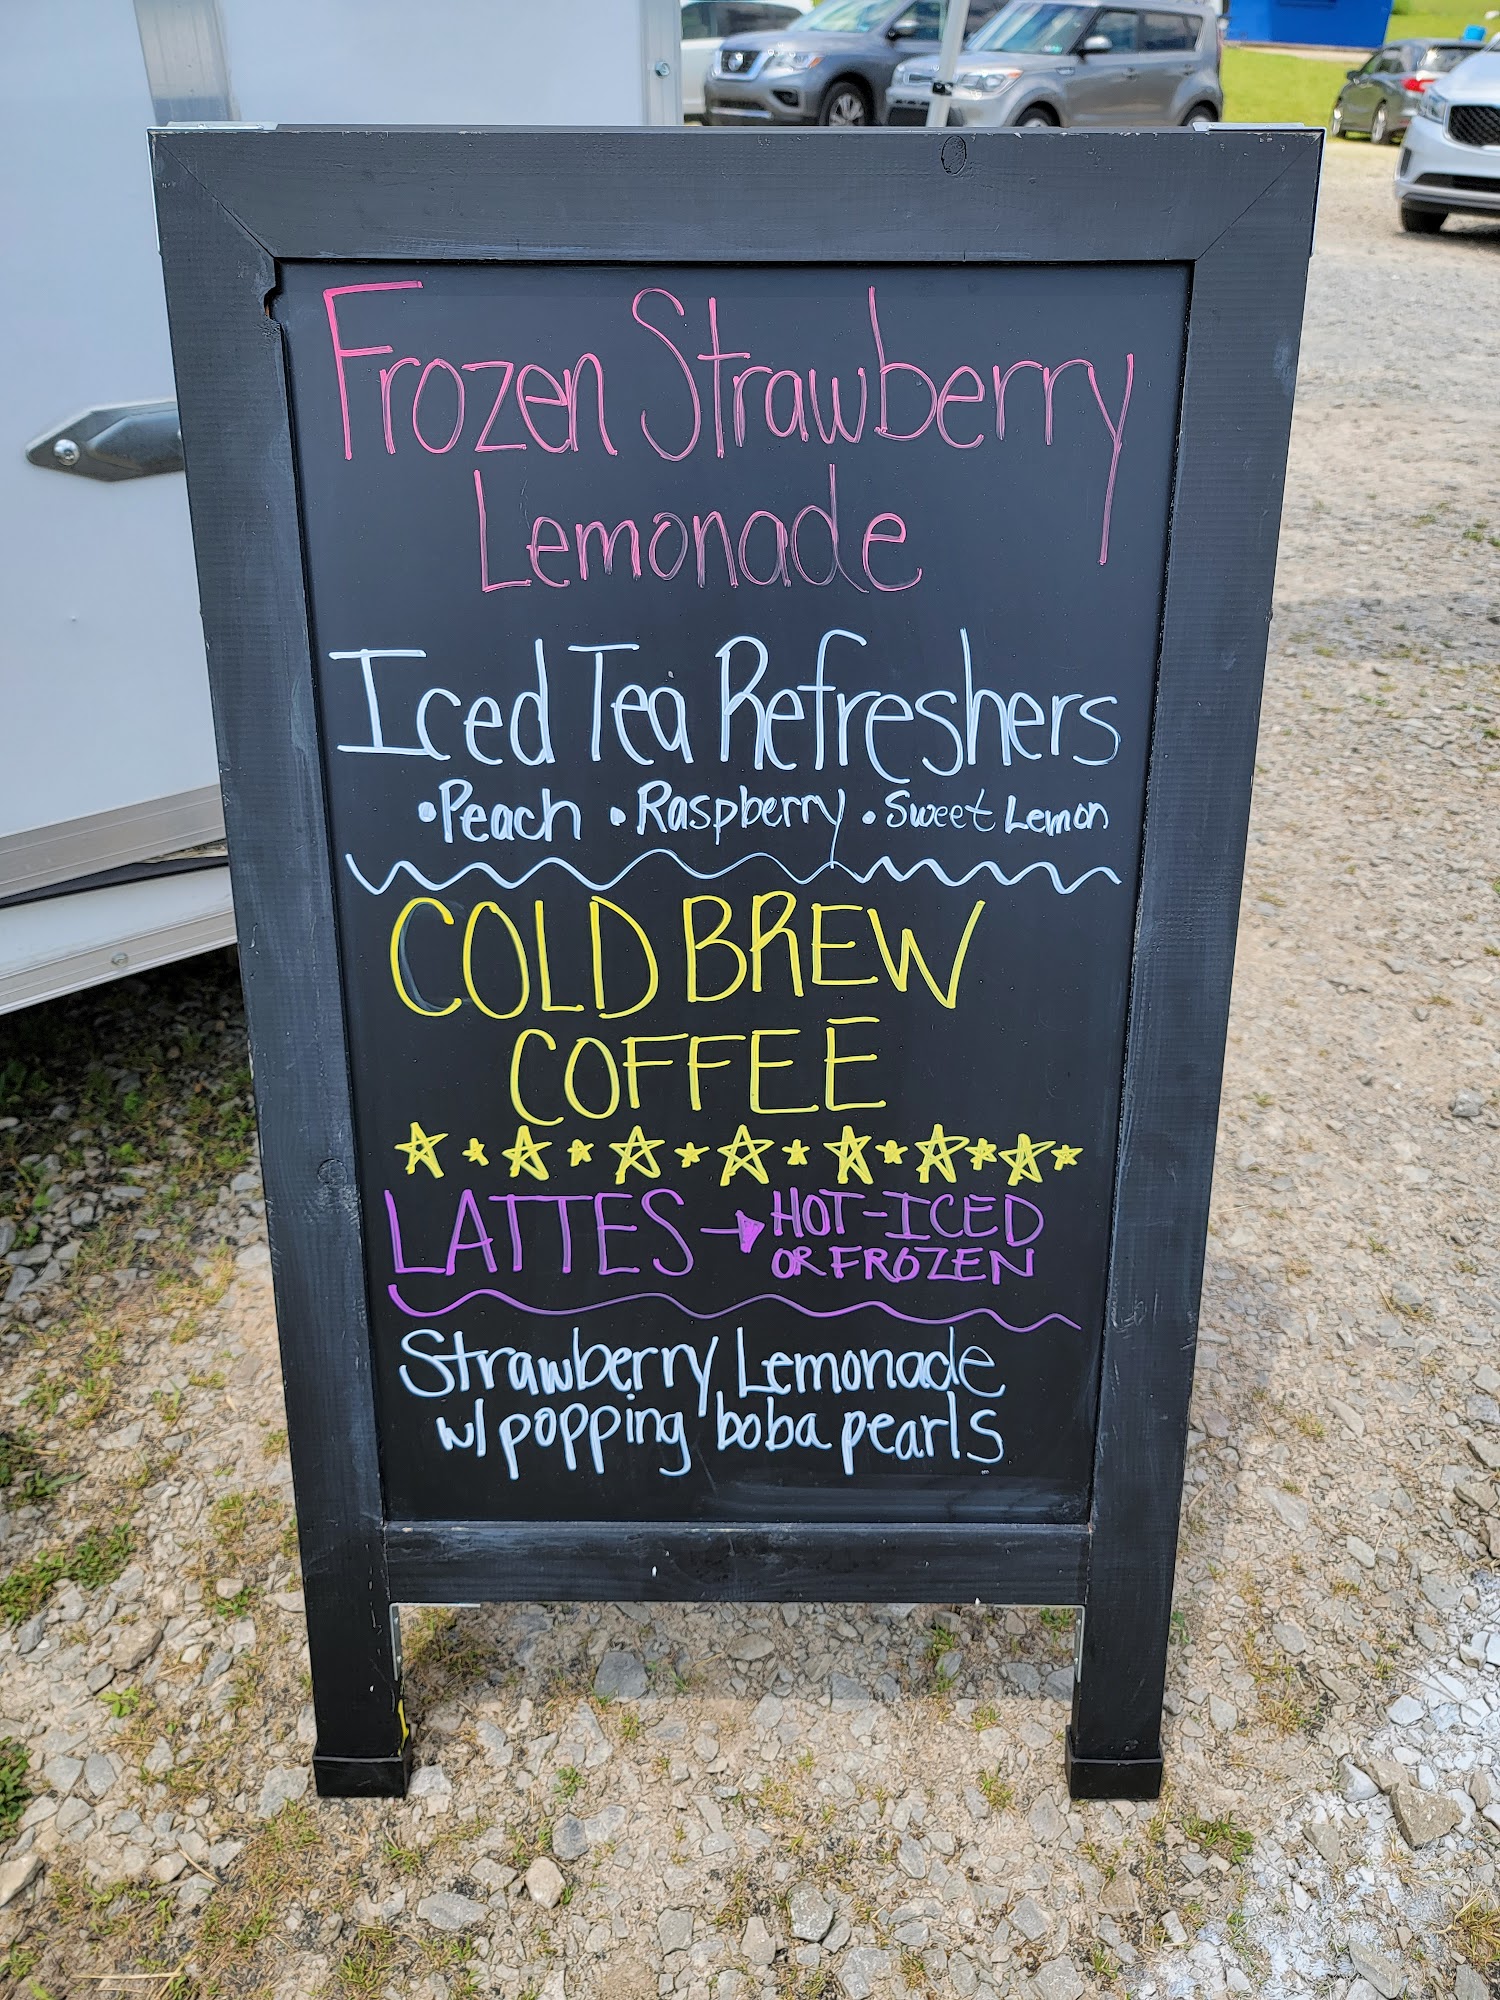 Frozen Strawberry
Lemonade
Iced Tea Refreshers
• Peach • Raspberry • Sweet Lemon
COLD BREW
COFFEE
LATTES → HOT-ICED
OR FROZEN
Strawberry Lemonade
w/ popping boba pearls